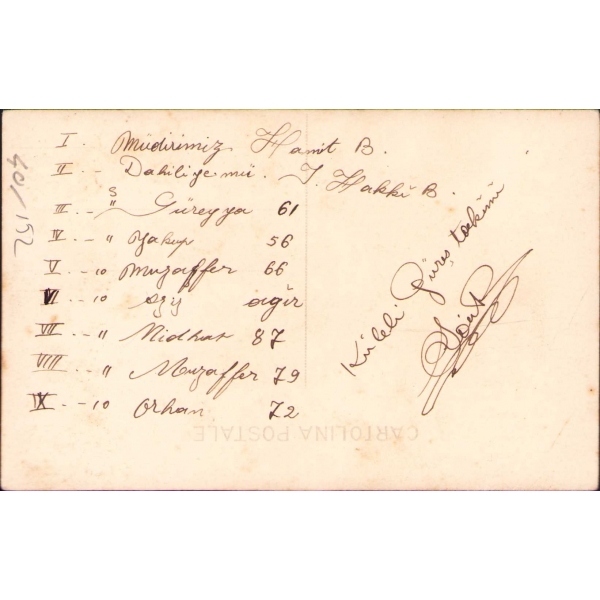 I. Müdirimiz Hamit B.
II - Dahiliye mü. I. Hakkı B.
III - " Süreyya 61
IV - " Yakup 56
V - 10 Muzaffer 66
VI - 10 ağır
VII - " Midhat 87
VIII - " Muzaffer 79
IX - 10 Orhan 72
Küleli Güreş takımı
401/152
CARTOLINA POSTALE